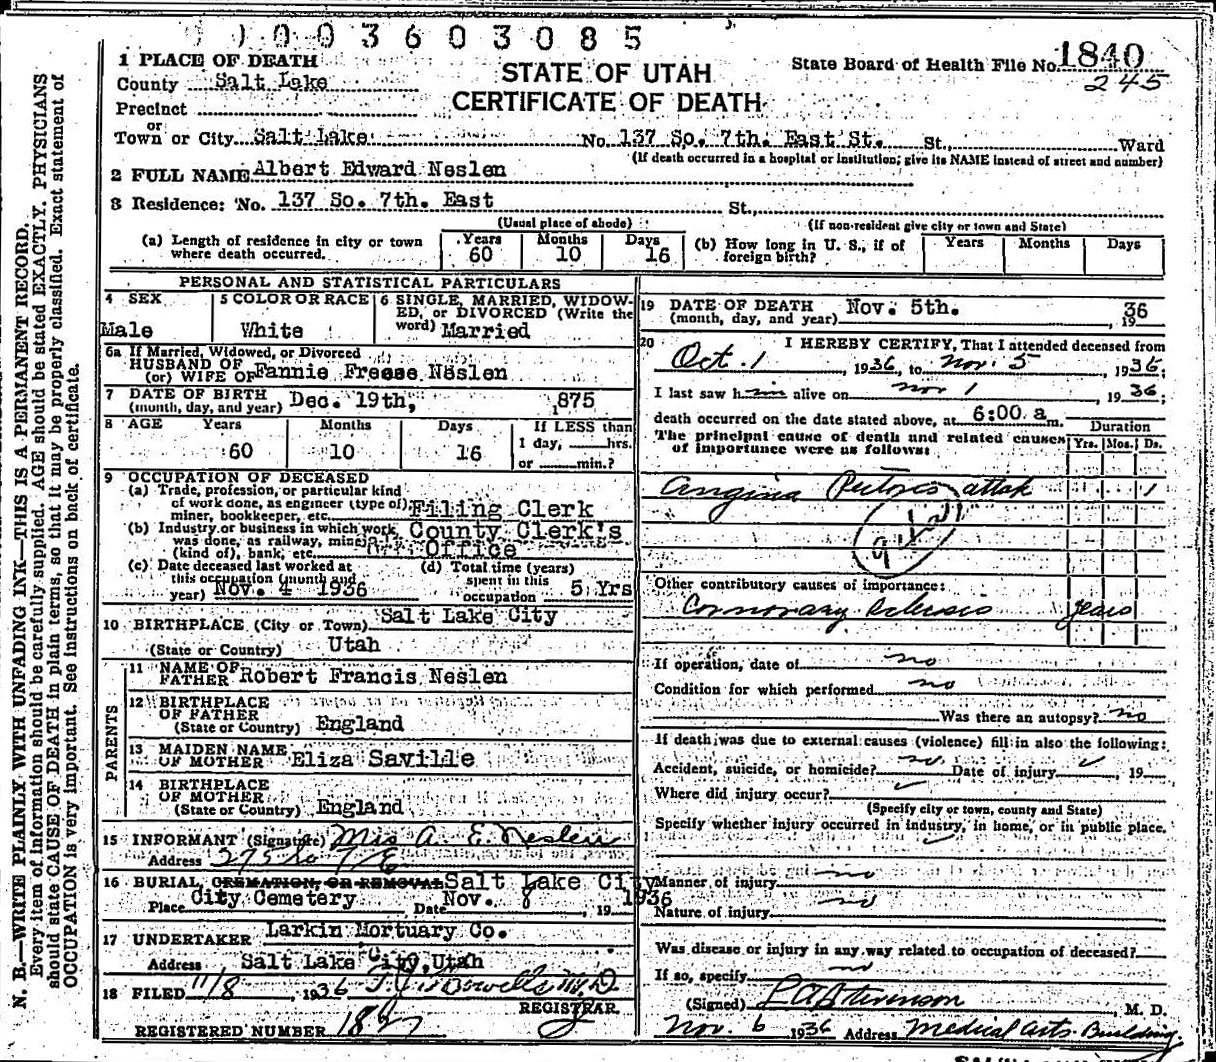 0003603085
1840
245
State Board of Health File No.
STATE OF UTAH
CERTIFICATE OF DEATH
1 PLACE OF DEATH
County Salt Lake
Precinct
or
Town or City Salt Lake No. 137 So. 7th. East St. St., Ward
(If death occurred in a hospital or institution; give its NAME instead of street and number)
2 FULL NAME Albert Edward Neslen
3 Residence: No. 137 So. 7th. East St.,
(Usual place of abode) (If non-resident give city or town and State)
(a) Length of residence in city or town where death occurred. Years 60 Months 10 Days 16 (b) How long in U. S., if of foreign birth? Years Months Days
PERSONAL AND STATISTICAL PARTICULARS
4 SEX Male
5 COLOR OR RACE White
6 SINGLE, MARRIED, WIDOWED, or DIVORCED (Write the word) Married
6a If Married, Widowed, or Divorced
HUSBAND OF
(or) WIFE OF Fannie Freese Neslen
7 DATE OF BIRTH
(month, day, and year) Dec. 19th, 1875
8 AGE Years 60 Months 10 Days 16 If LESS than 1 day, hrs. or min.?
9 OCCUPATION OF DECEASED
(a) Trade, profession, or particular kind
of work done, as engineer (type of)
miner, bookkeeper, etc. Filing Clerk
(b) Industry or business in which work
was done, as railway, mine
(kind of), bank, etc. County Clerk's Office
(c) Date deceased last worked at
this occupation (month and
year) Nov. 4 1936
(d) Total time (years)
spent in this
occupation 5 Yrs
10 BIRTHPLACE (City or Town) Salt Lake City
(State or Country) Utah
PARENTS
11 NAME OF
FATHER Robert Francis Neslen
12 BIRTHPLACE
OF FATHER
(State or Country) England
13 MAIDEN NAME
OF MOTHER Eliza Saville
14 BIRTHPLACE
OF MOTHER
(State or Country) England
15 INFORMANT (Signature) Mrs A. E. Neslen
Address
16 BURIAL CREMATION, OR REMOVAL Salt Lake City
Place City Cemetery Date Nov. 8, 19 1936
17 UNDERTAKER Larkin Mortuary Co.
Address Salt Lake City, Utah
18 FILED 11/8, 1936
REGISTRAR
REGISTERED NUMBER
19 DATE OF DEATH
(month, day, and year) Nov. 5th., 1936
20 I HEREBY CERTIFY, That I attended deceased from
Oct. 1, 1936, to Nov. 5, 1936;
I last saw him alive on Nov 1, 1936;
death occurred on the date stated above, at 6:00 a m.
The principal cause of death and related causes
of importance were as follows:
Duration
Yrs. Mos. Ds.
Angina Pectoris attak 1
Other contributory causes of importance:
years
If operation, date of no
Condition for which performed no
Was there an autopsy? no
If death was due to external causes (violence) fill in also the following:
Accident, suicide, or homicide? no Date of injury, 19
Where did injury occur?
(Specify city or town, county and State)
Specify whether injury occurred in industry, in home, or in public place.
Manner of injury no
Nature of injury no
Was disease or injury in any way related to occupation of deceased?
If so, specify no
(Signed) L A Stevenson M. D.
Nov. 6 1936 Address Medical Arts Building.
N. B.—WRITE PLAINLY WITH UNFADING INK—THIS IS A PERMANENT RECORD.
Every item of information should be carefully supplied. AGE should be stated EXACTLY. PHYSICIANS
should state CAUSE OF DEATH in plain terms, so that it may be properly classified. Exact statement of
OCCUPATION is very important. See instructions on back of certificate.